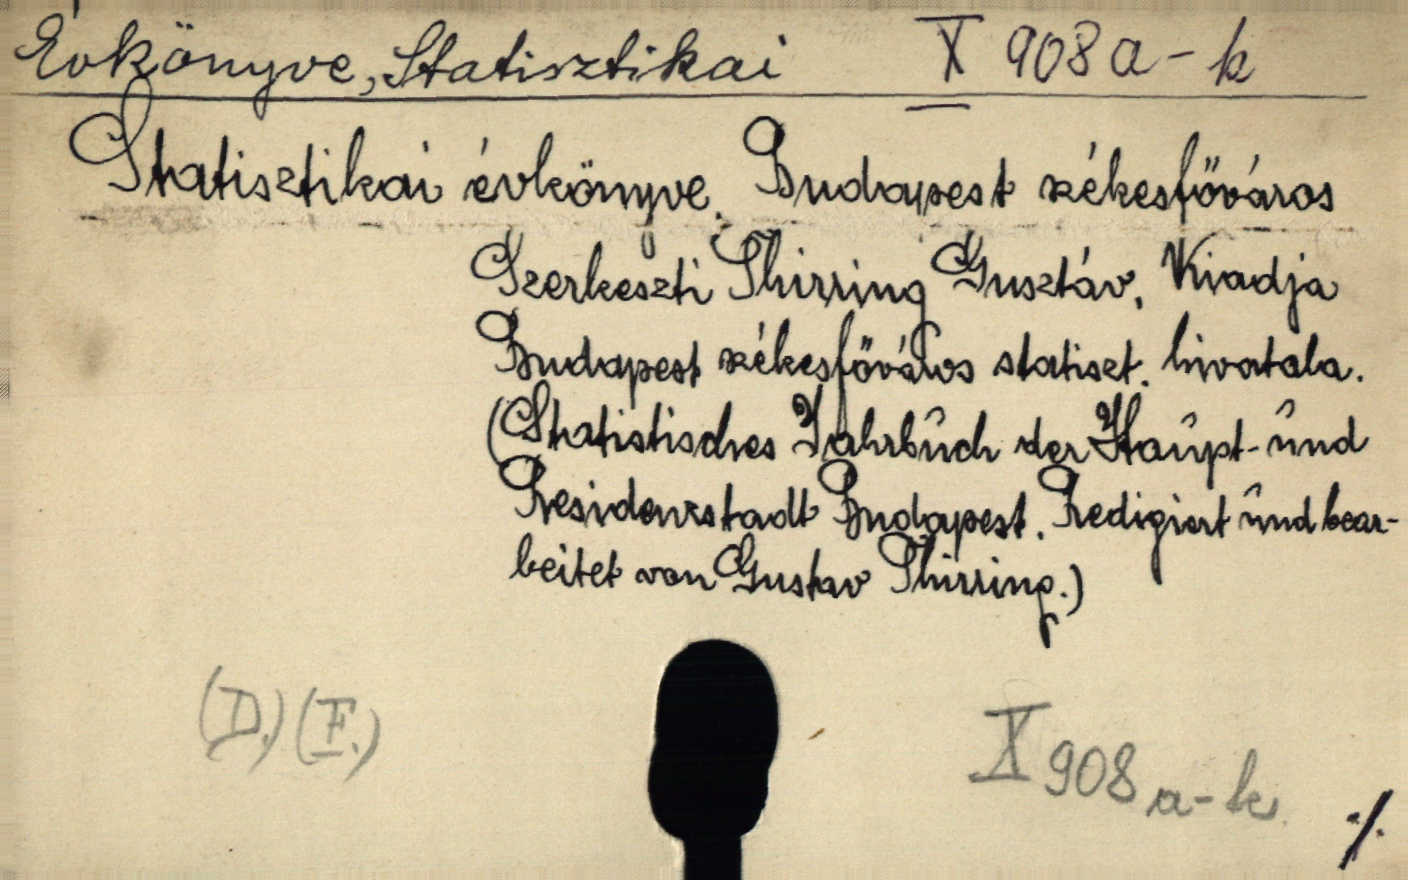 Évkönyve, Statisztikai X 908 a-k
Statisztikai évkönyve. Budapest székesfőváros
Szerkeszti Thirring Gusztáv. Kiadja
Budapest székesfőváros statiszt. hivatala.
(Statistisches Jahrbuch der Haupt- und
Residenzstadt Budapest. Redigiert und bear-
beitet von Gustav Thirring.)
(D.) (F.)
X 908 a-k
./.